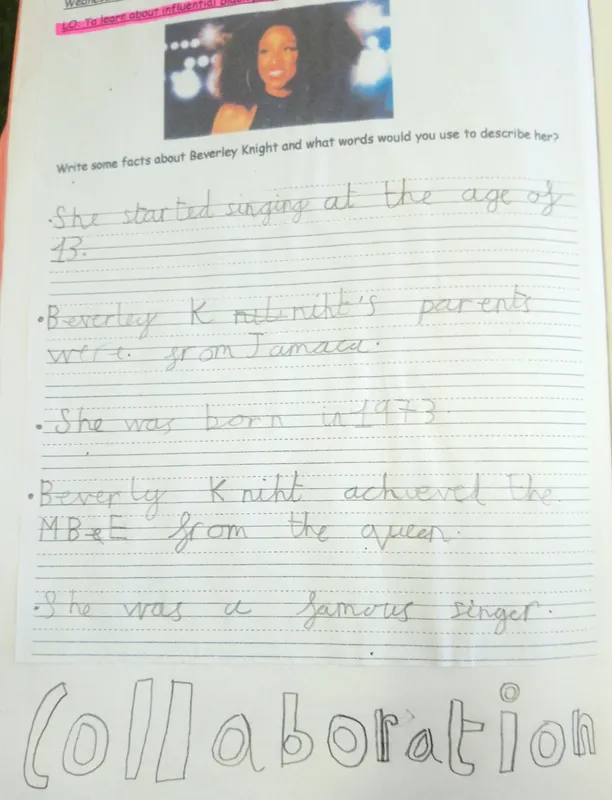 LO: To learn about influential
Write some facts about Beverley Knight and what words would you use to describe her?
•She started singing at the age of
13.
•Beverley K niht's parents
were. from Jamaca.
• She was born in 1973.
•Beverly K niht achieved the
MB&E from the queen.
•She was a famous singer.
Collaboration